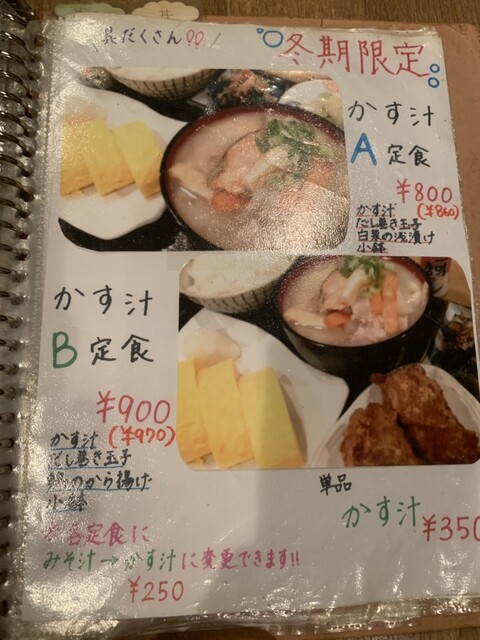 具だくさん♡♡
冬期限定
かす汁
A 定食
¥800
(¥860)
かす汁
だし巻き玉子
白菜の浅漬け
小鉢
かす汁
B 定食
¥900
(¥970)
かす汁
だし巻き玉子
鶏のから揚げ
小鉢
単品
かす汁
¥350
各定食に
みそ汁→かす汁に変更できます!!
¥250